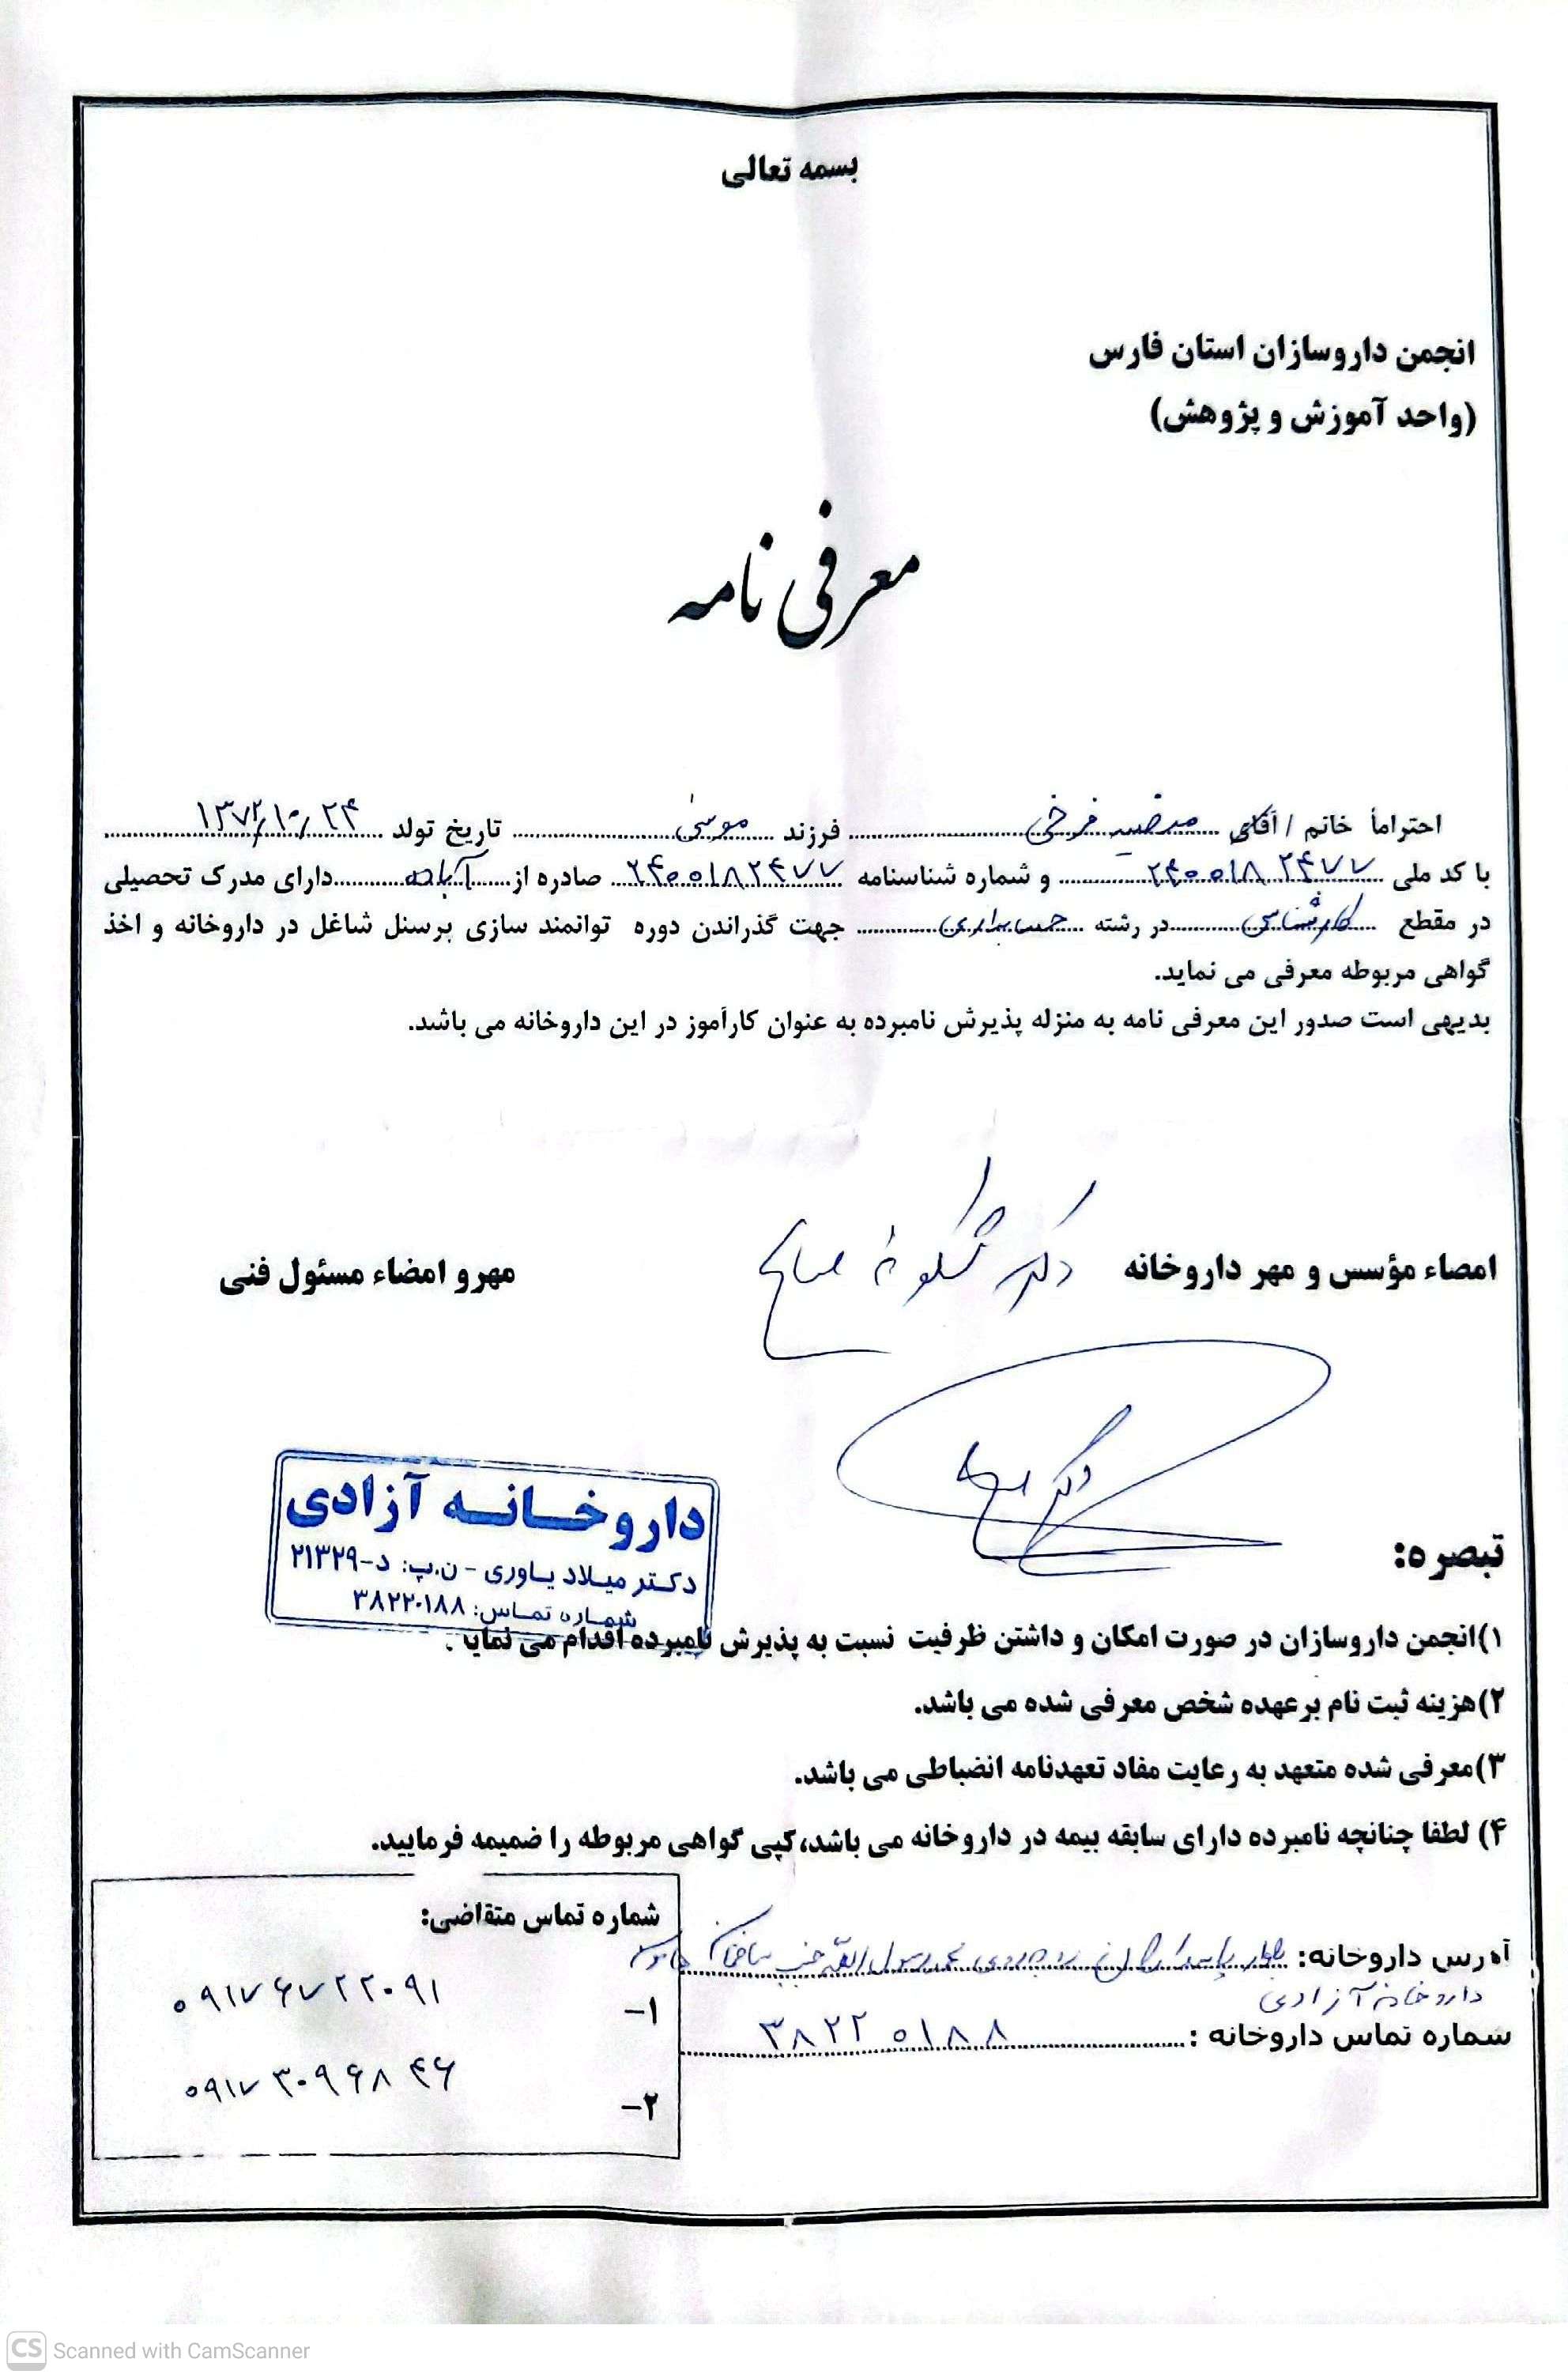 بسمه تعالی
انجمن داروسازان استان فارس
(واحد آموزش و پژوهش)
معرفی نامه
احتراماً خانم / آقای مرضیه فرخی فرزند موسی تاریخ تولد ۱۳۷۲/۱۰/۲۴
با کد ملی ۲۴۰۰۱۸۲۴۷۷ و شماره شناسنامه ۲۴۰۰۱۸۲۴۷۷ صادره از آباده دارای مدرک تحصیلی
در مقطع کارشناسی در رشته حسابداری جهت گذراندن دوره توانمند سازی پرسنل شاغل در داروخانه و اخذ
گواهی مربوطه معرفی می نماید.
بدیهی است صدور این معرفی نامه به منزله پذیرش نامبرده به عنوان کارآموز در این داروخانه می باشد.
امضاء مؤسس و مهر داروخانه دکتر شکوفه
مهر و امضاء مسئول فنی
دکتر
داروخانه آزادی
دکتر میلاد یاوری - ن.پ: د-۲۱۳۲۹
شماره تماس: ۳۸۲۲۰۱۸۸
تبصره:
۱)انجمن داروسازان در صورت امکان و داشتن ظرفیت نسبت به پذیرش نامبرده اقدام می نماید.
۲)هزینه ثبت نام برعهده شخص معرفی شده می باشد.
۳)معرفی شده متعهد به رعایت مفاد تعهدنامه انضباطی می باشد.
۴) لطفا چنانچه نامبرده دارای سابقه بیمه در داروخانه می باشد،کپی گواهی مربوطه را ضمیمه فرمایید.
آدرس داروخانه: بلوار پاسداران روبروی محمد رسول الله جنب ساختمان
داروخانه آزادی
شماره تماس داروخانه : ۳۸۲۲۰۱۸۸
شماره تماس متقاضی:
۱- ۰۹۱۷۶۷۲۲۰۹۱
۲- ۰۹۱۷۳۰۹۶۸۴۶
CS Scanned with CamScanner